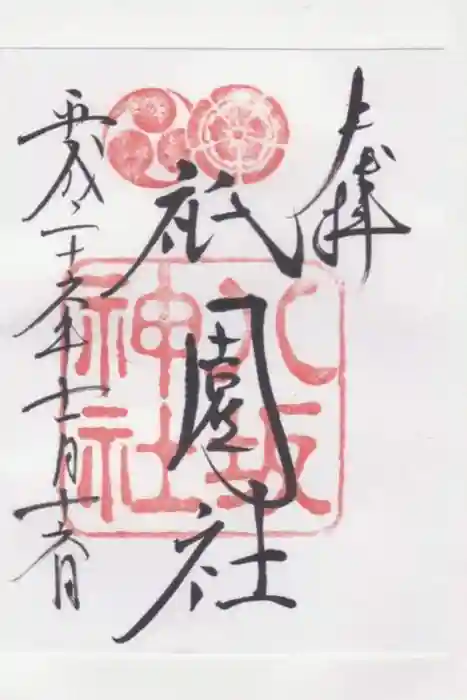 奉拝
祇園社
八坂
神社
平成二十六年十一月十六日